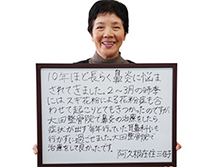 10年ほど長らく鼻炎に悩ま
されてきました。2〜3月の時季
にはスギ花粉による花粉症も合
わせて起こりとてもきつかったのですが
大田整骨院で鼻炎の治療をしたら
症状が出ず毎年行っていた耳鼻科にも
行かずに過ごせました。大田整骨院で
治療をして良かったです。
阿久根在住 三好